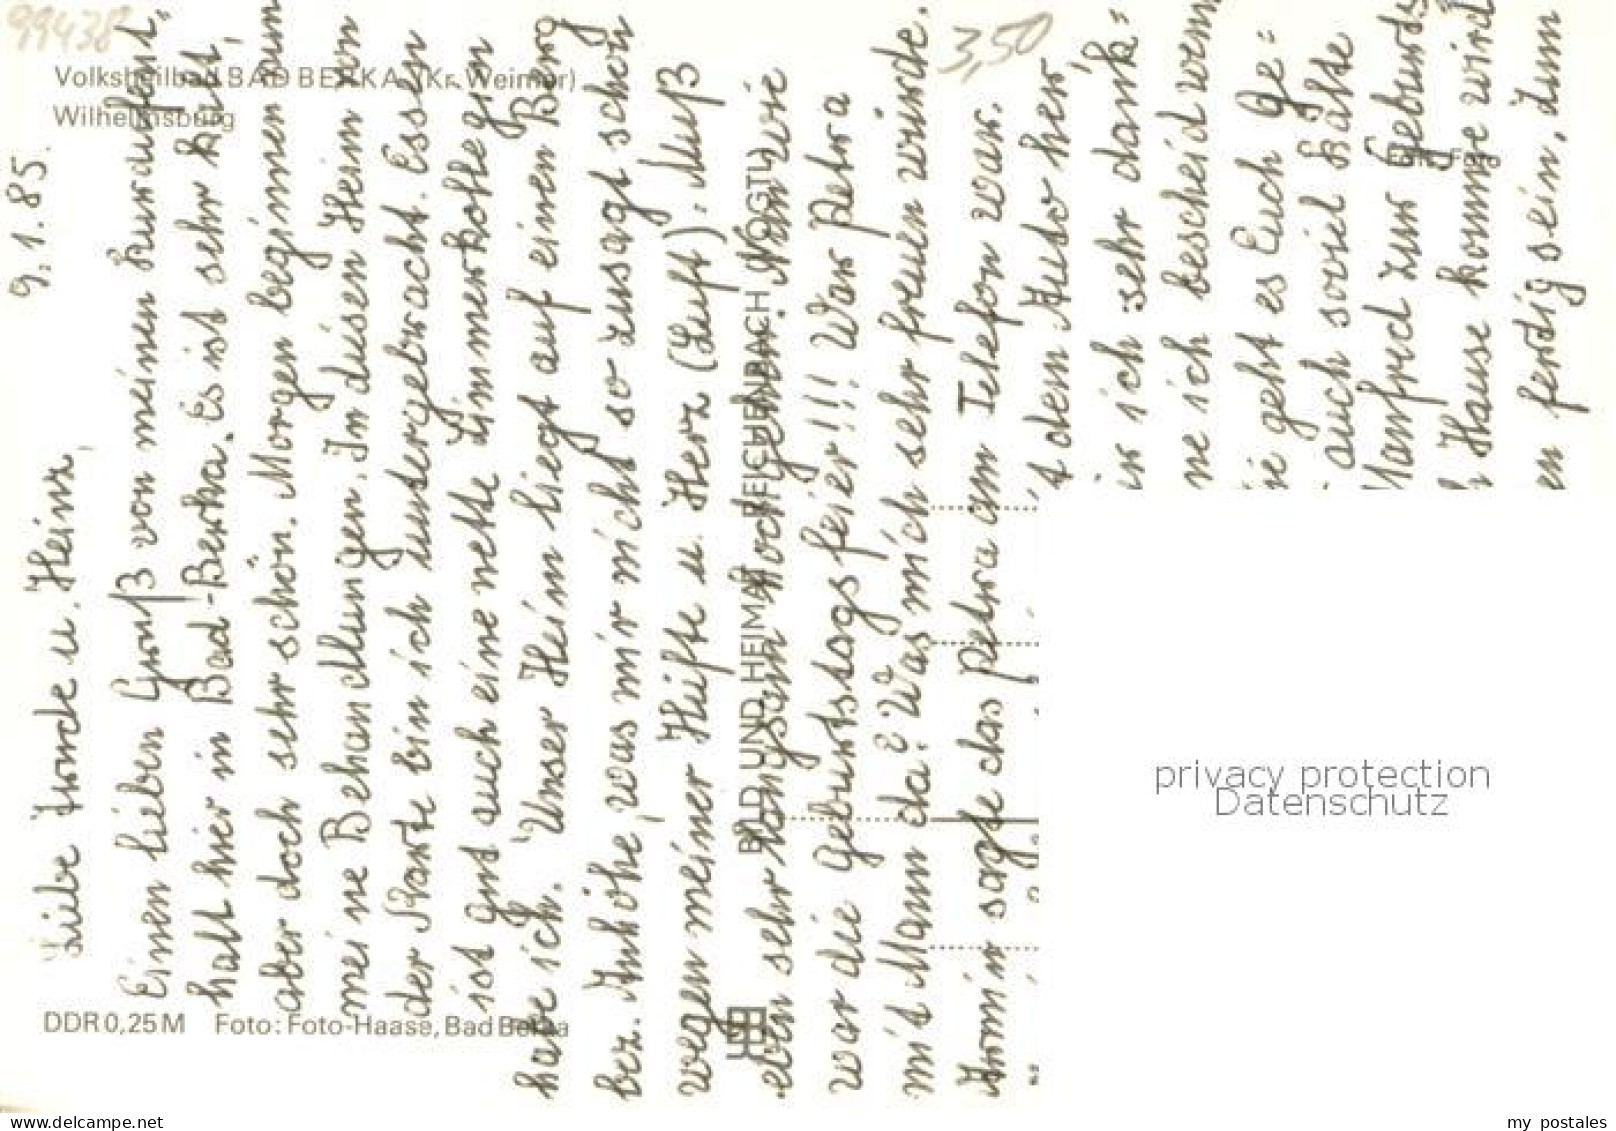 99438
Volksheilbad BAD BERKA (Kr. Weimar)
Wilhelmsburg
9.1.85.
Liebe Trude u. Heinz,
Einen lieben Gruß von meinen Kuraufent-
halt hier in Bad-Berka. Es ist sehr kalt,
aber doch sehr schön. Morgen beginnen nun
meine Behandlungen. In diesen Heim von
der Karte bin ich untergebracht. Essen
ist gut auch eine nette Zimmerkollegin
habe ich. Unser Heim liegt auf einen Berg
bez. Anhöhe, was mir nicht so zusagt schon
wegen meiner Hüfte u. Herz (Luft). Muß
eben sehr langsam hochgehen. Nun wie
war die Geburtstagsfeier!!! War Petra
mit Mann da? Was mich sehr freuen würde.
Armin sagte das Petra am Telefon war.
t dem Auto her,
ir ich sehr dank=
ne ich bescheid wenn
ie geht es Euch Ge=
auch soviel Kälte
Manfred zur Geburts
Hause komme wird
en fertig sein. Zum
3,50
BILD UND HEIMAT REICHENBACH (VOGTL)
DDR 0,25 M Foto: Foto-Haase, Bad Berka
privacy protection
Datenschutz
www.delcampe.net
my_postales